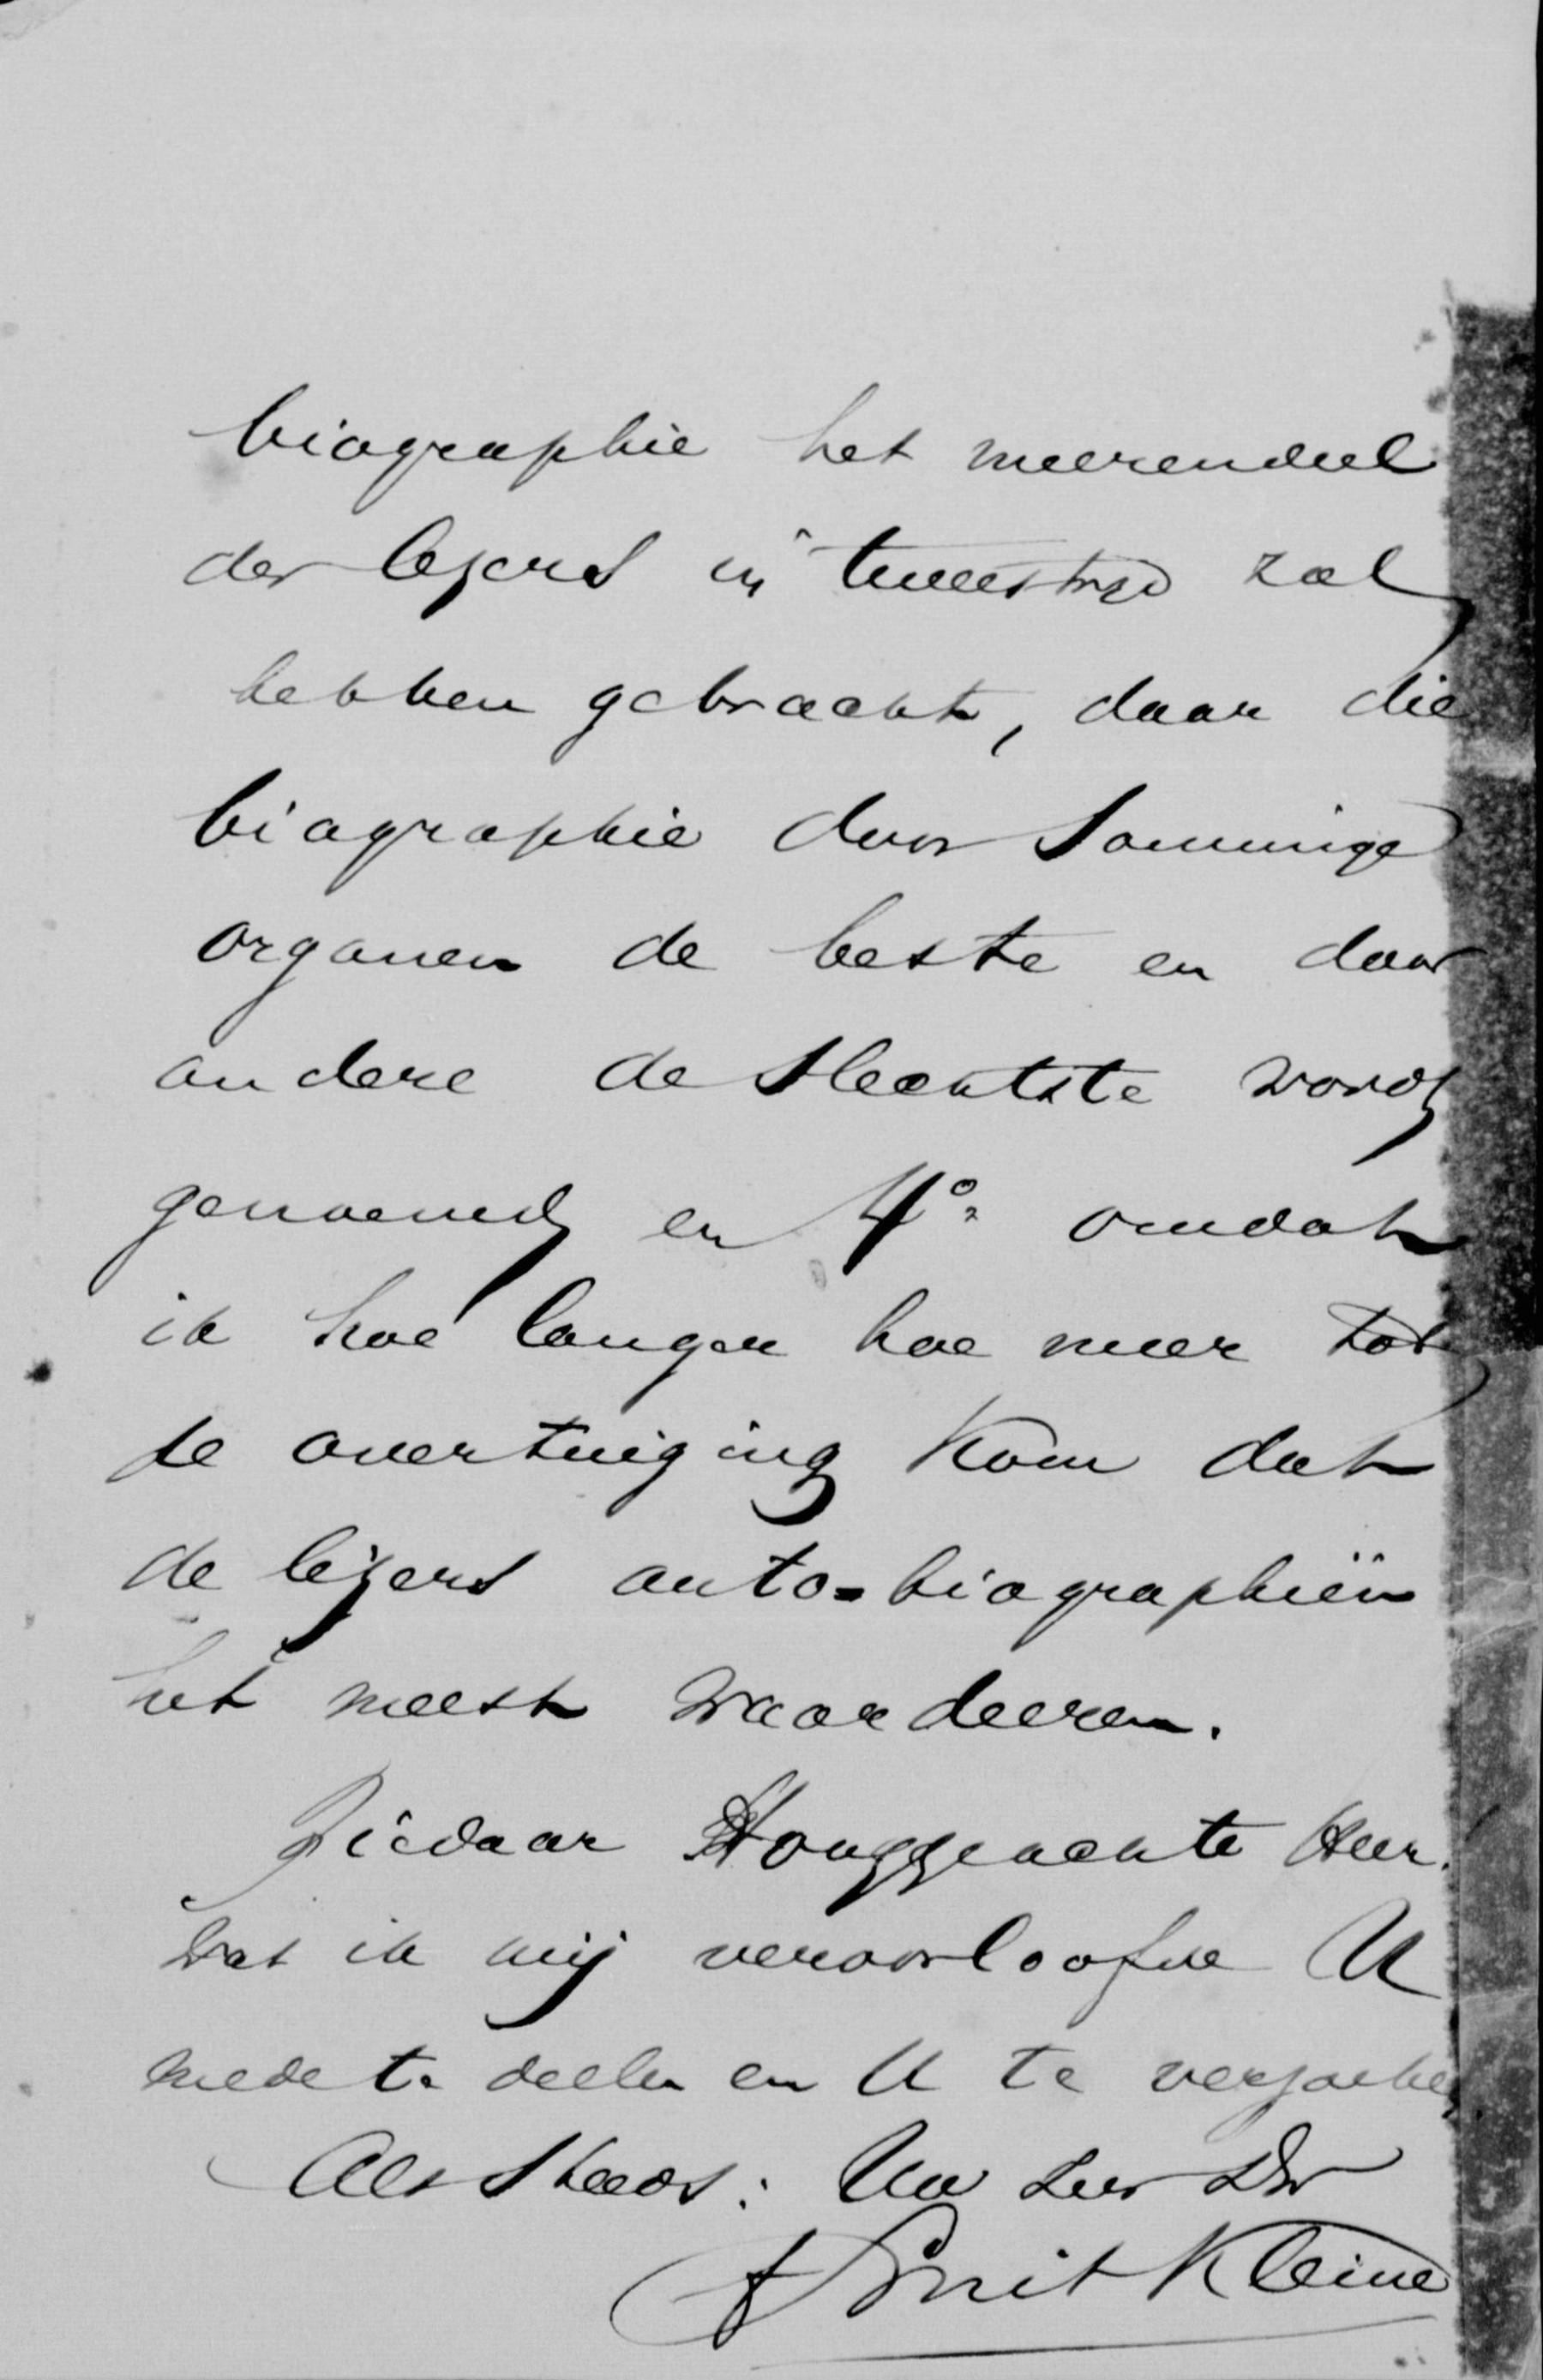 biographie het meerendeel
der lezers in tweestrijd zal
hebben gebracht, daar die
biographie door sommige
organen de beste en door
andere de slechtste wordt
genoemd en 4o omdat
ik hoe langer hoe meer tot
de overtuiging kom dat
de lezers auto-biographiën
het meest waardeeren.
Ziedaar Hooggeachte Heer.
wat ik mij veroorloofde U
mede te deelen en U te verzoeken.
Als steeds: Uw zeer Dw
F Smit Kleine